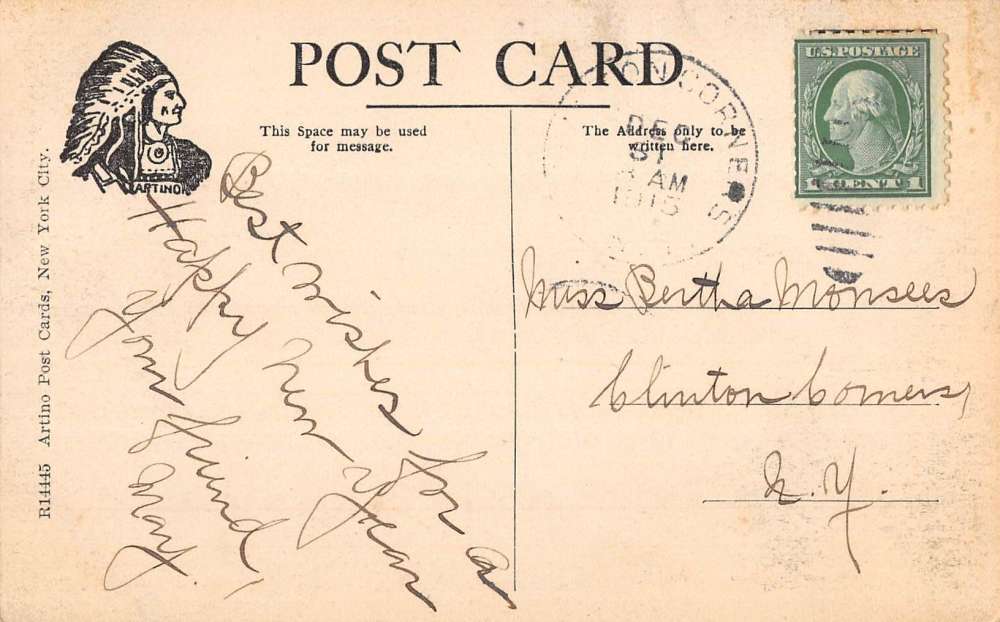 POST CARD
This Space may be used
for message.
The Address only to be
written here.
U.S. POSTAGE
1 CENT 1
ON CORNERS
DEC
31
AM
1915
ARTINO
R14445 Artino Post Cards, New York City.
Best wishes for a
Happy new year
your friend,
May.
Miss Bertha Monsees
Clinton Corners,
N.Y.